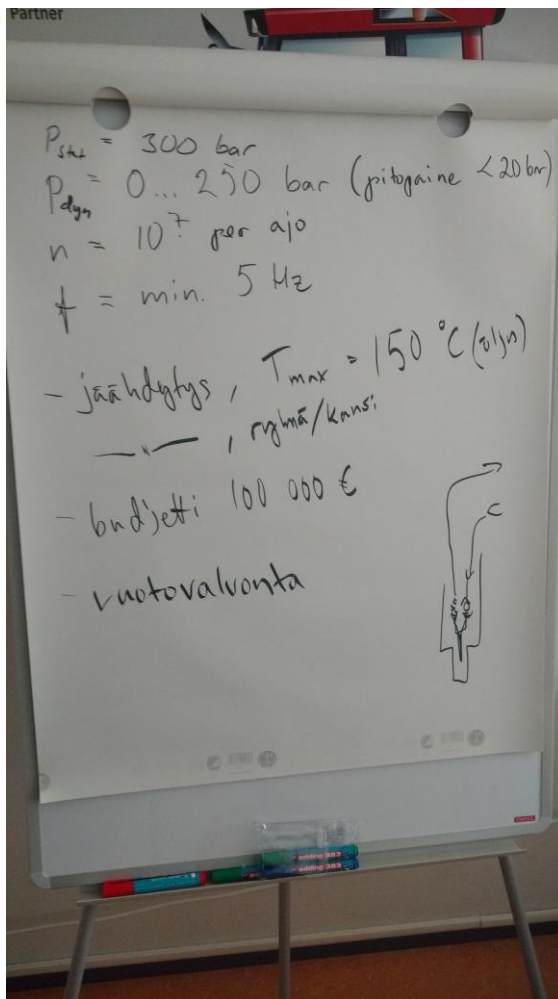 Partner
P_stat = 300 bar
P_dyn = 0... 250 bar (pitopaine < 20 bar)
n = 10⁷ per ajo
f = min. 5 Hz
- jäähdytys, T_max = 150 °C (öljy)
—〃—, ryhmä/kansi
- budjetti 100 000 €
- vuotovalvonta
STAPLES
edding 383
edding 383